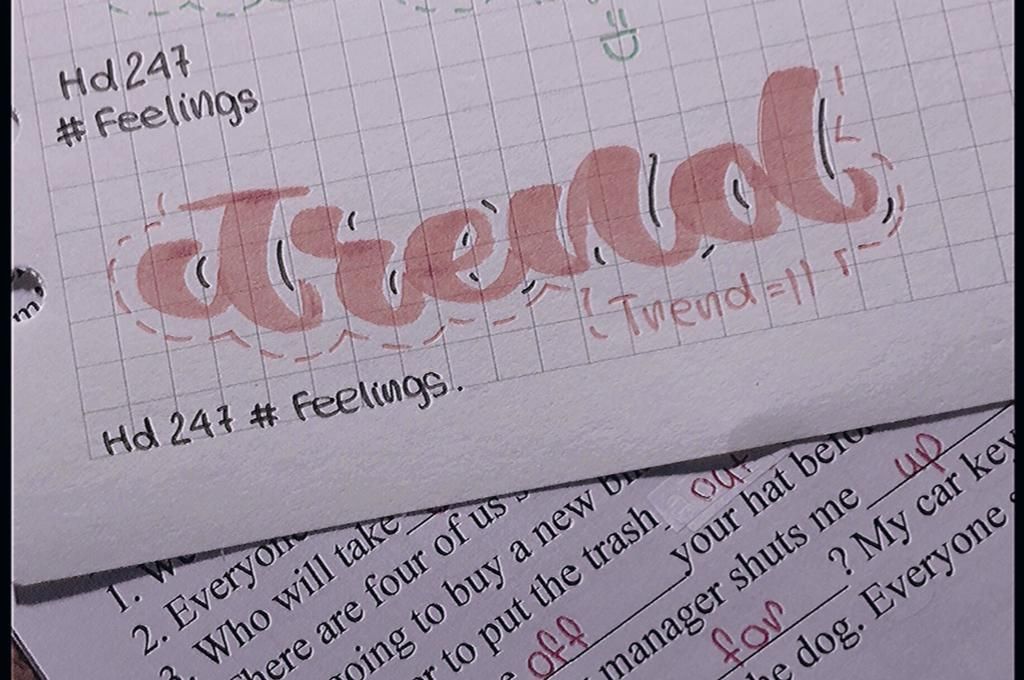 Hd 247
# Feelings
Trend
Trend =11
Hd 247 # Feelings.
1. We
2. Everyone
3. Who will take
here are four of us
going to buy a new
to put the trash out
off your hat befo
manager shuts me up
for ? My car key
he dog. Everyone